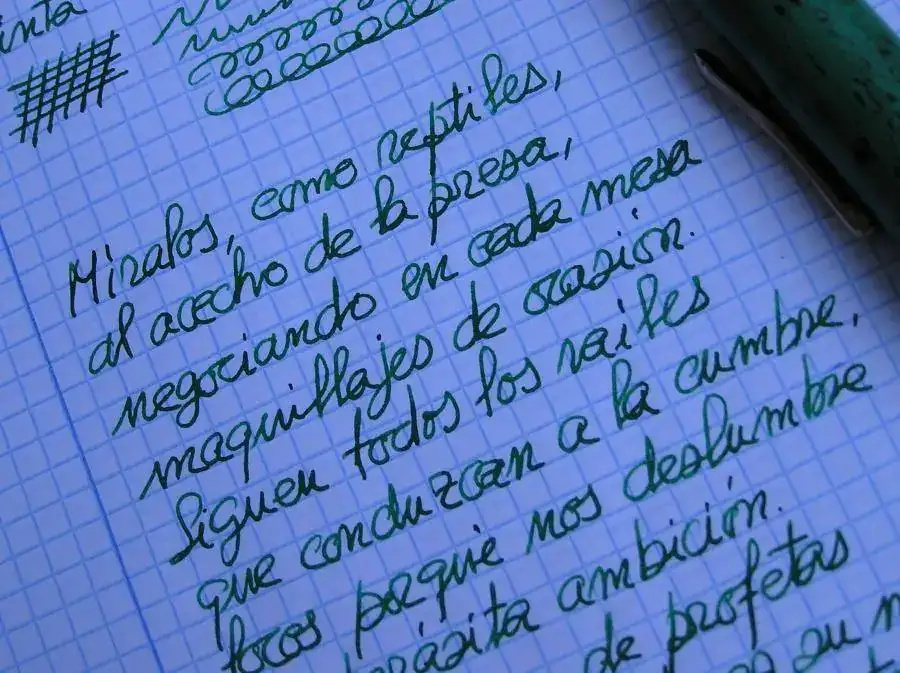 inta
Miralos, como reptiles,
al acecho de la presa,
negociando en cada mesa
maquillajes de ocasión.
Siguen todos los railes
que conduzcan a la cumbre,
locos porque nos deslumbre
parásita ambición.
de profetas
su